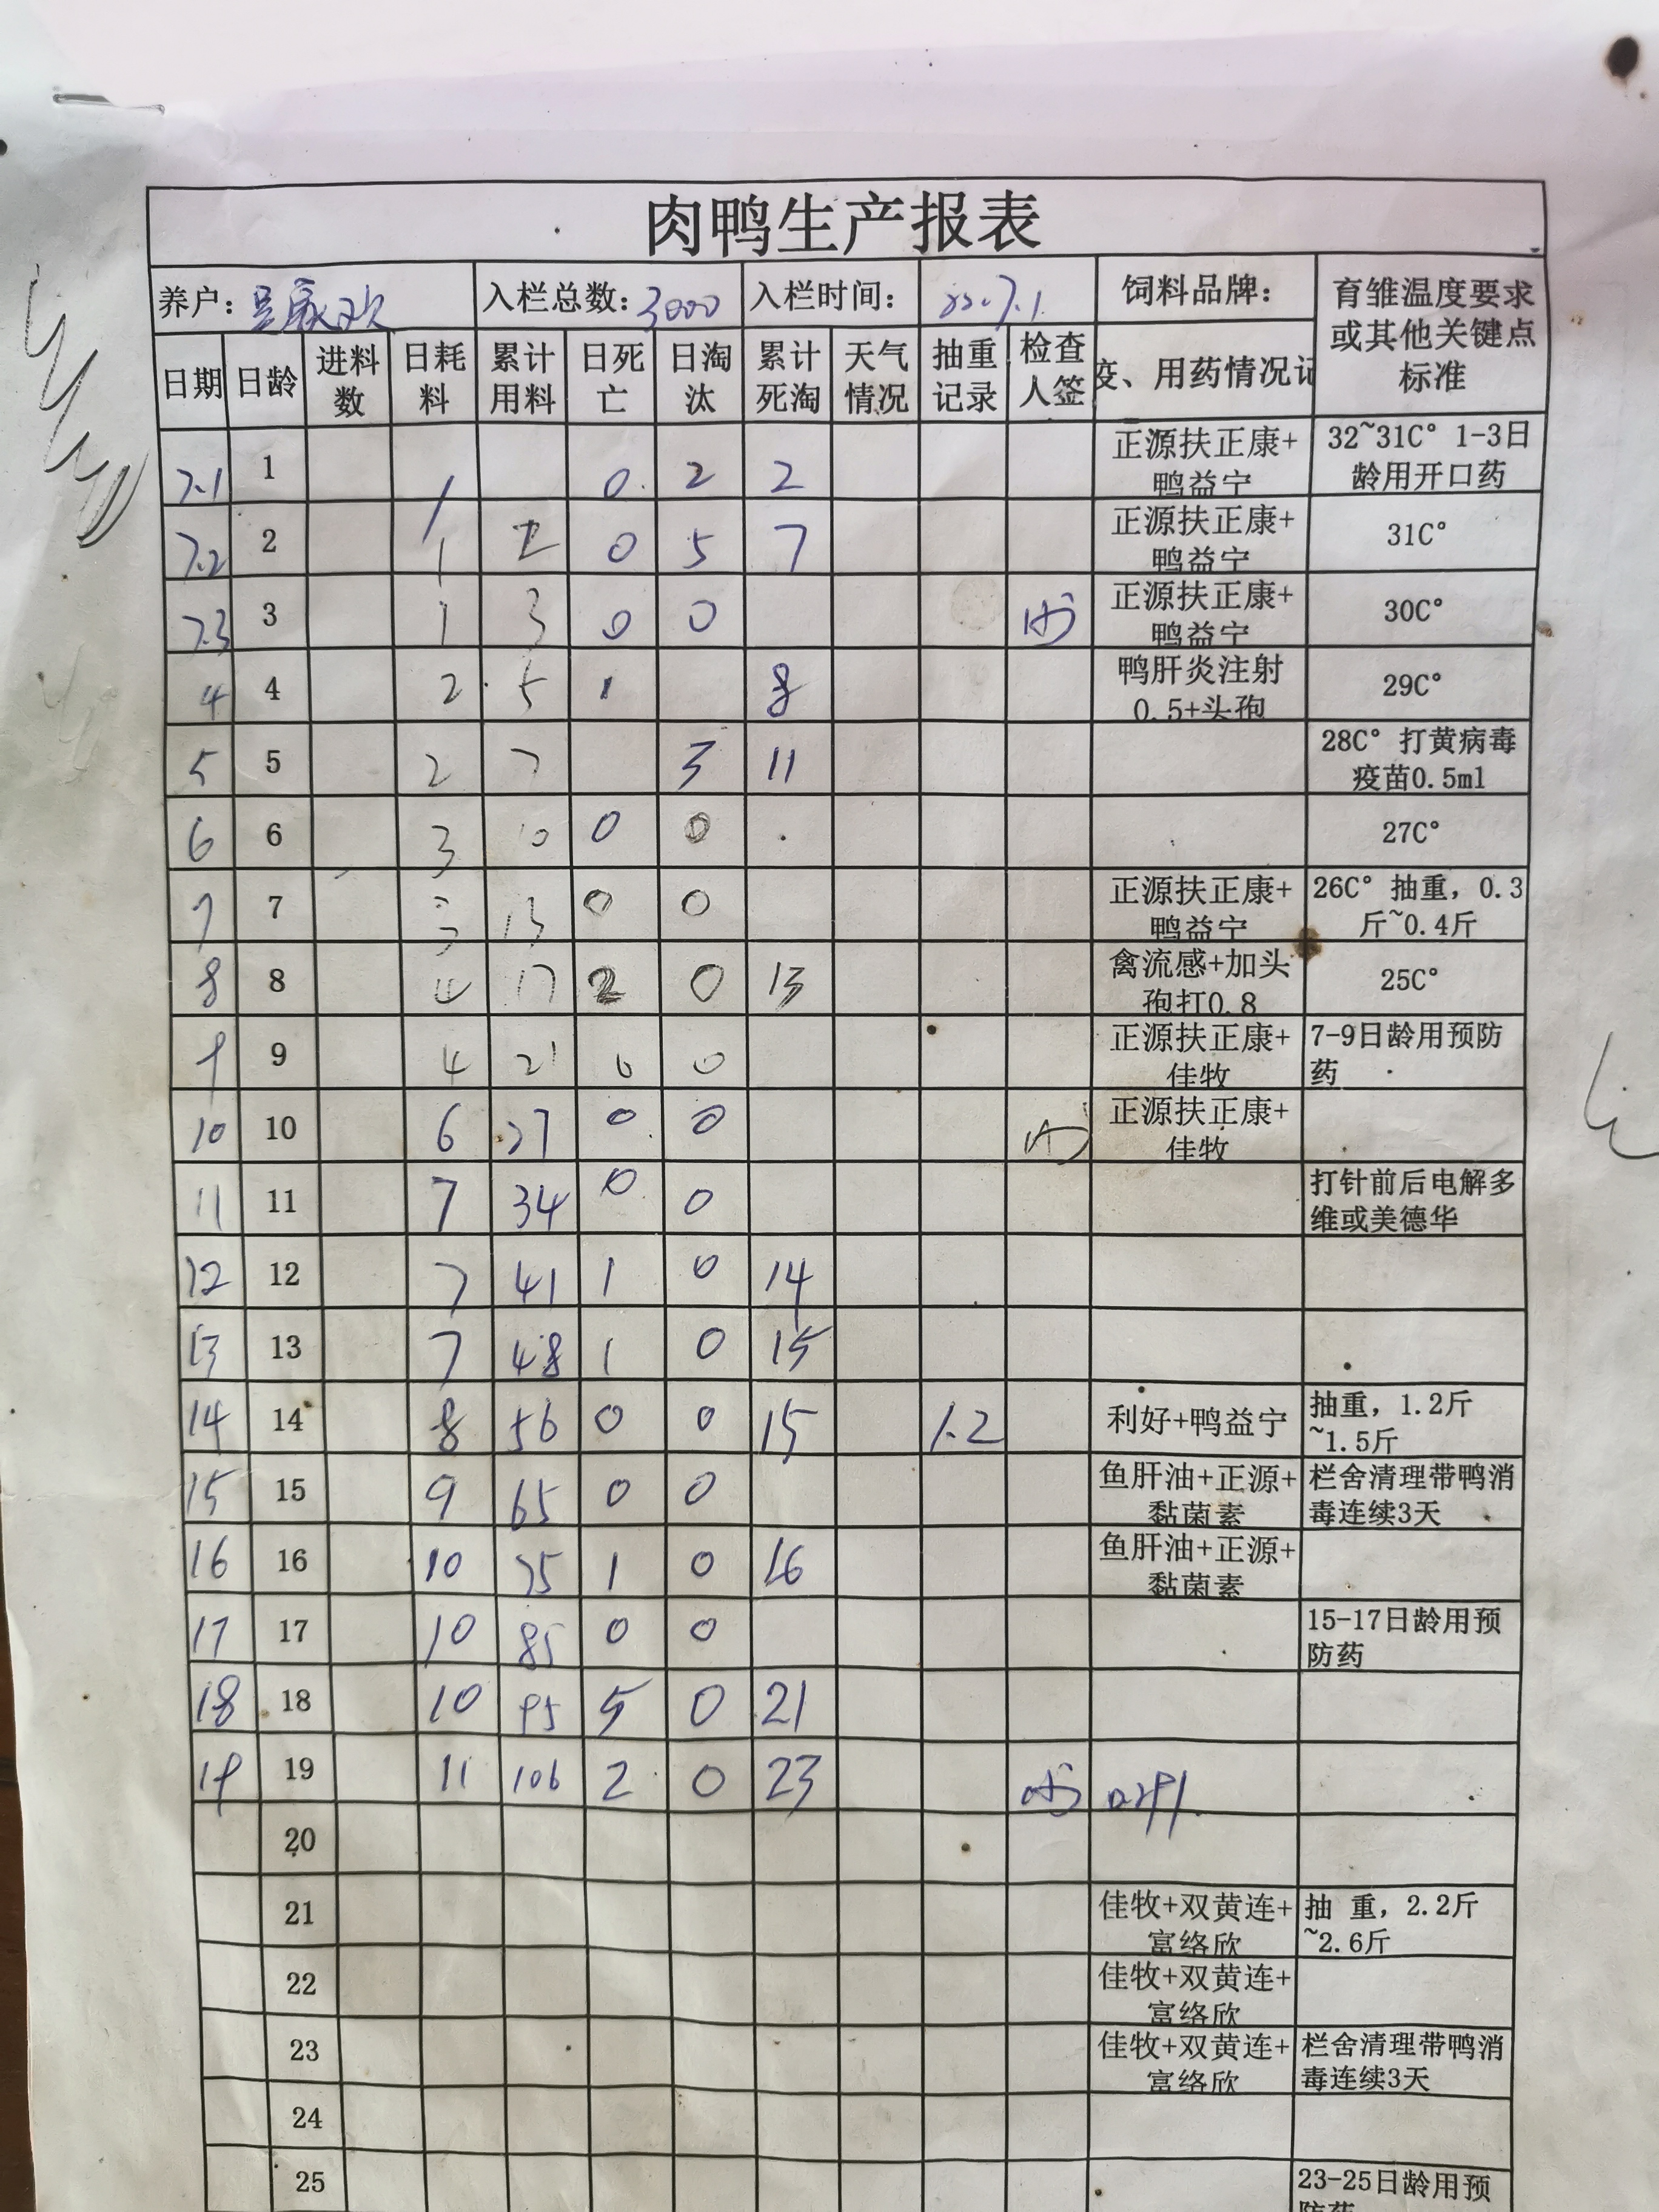 肉鸭生产报表
养户： 入栏总数：3000 入栏时间： 22.7.1 饲料品牌： 育雏温度要求或其他关键点标准
日期 日龄 进料数 日耗料 累计用料 日死亡 日淘汰 累计死淘 天气情况 抽重记录 检查人签 疫、用药情况记
7.1 1 1 0 2 2 正源扶正康+鸭益宁 32~31C° 1-3日龄用开口药
7.2 2 1 2 0 5 7 正源扶正康+鸭益宁 31C°
7.3 3 1 3 0 0 正源扶正康+鸭益宁 30C°
4 4 2 5 1 8 鸭肝炎注射0.5+头孢 29C°
5 5 2 7 3 11 28C° 打黄病毒疫苗0.5ml
6 6 3 10 0 0 27C°
7 7 3 13 0 0 正源扶正康+鸭益宁 26C° 抽重，0.3斤~0.4斤
8 8 4 17 2 0 13 禽流感+加头孢打0.8 25C°
9 9 4 21 0 0 正源扶正康+佳牧 7-9日龄用预防药
10 10 6 27 0 0 正源扶正康+佳牧
11 11 7 34 0 0 打针前后电解多维或美德华
12 12 7 41 1 0 14
13 13 7 48 1 0 15
14 14 8 56 0 0 15 1.2 利好+鸭益宁 抽重，1.2斤~1.5斤
15 15 9 65 0 0 鱼肝油+正源+黏菌素 栏舍清理带鸭消毒连续3天
16 16 10 75 1 0 16 鱼肝油+正源+黏菌素
17 17 10 85 0 0 15-17日龄用预防药
18 18 10 95 5 0 21
19 19 11 106 2 0 23
20
21 佳牧+双黄连+富络欣 抽 重，2.2斤~2.6斤
22 佳牧+双黄连+富络欣
23 佳牧+双黄连+富络欣 栏舍清理带鸭消毒连续3天
24
25 23-25日龄用预防药